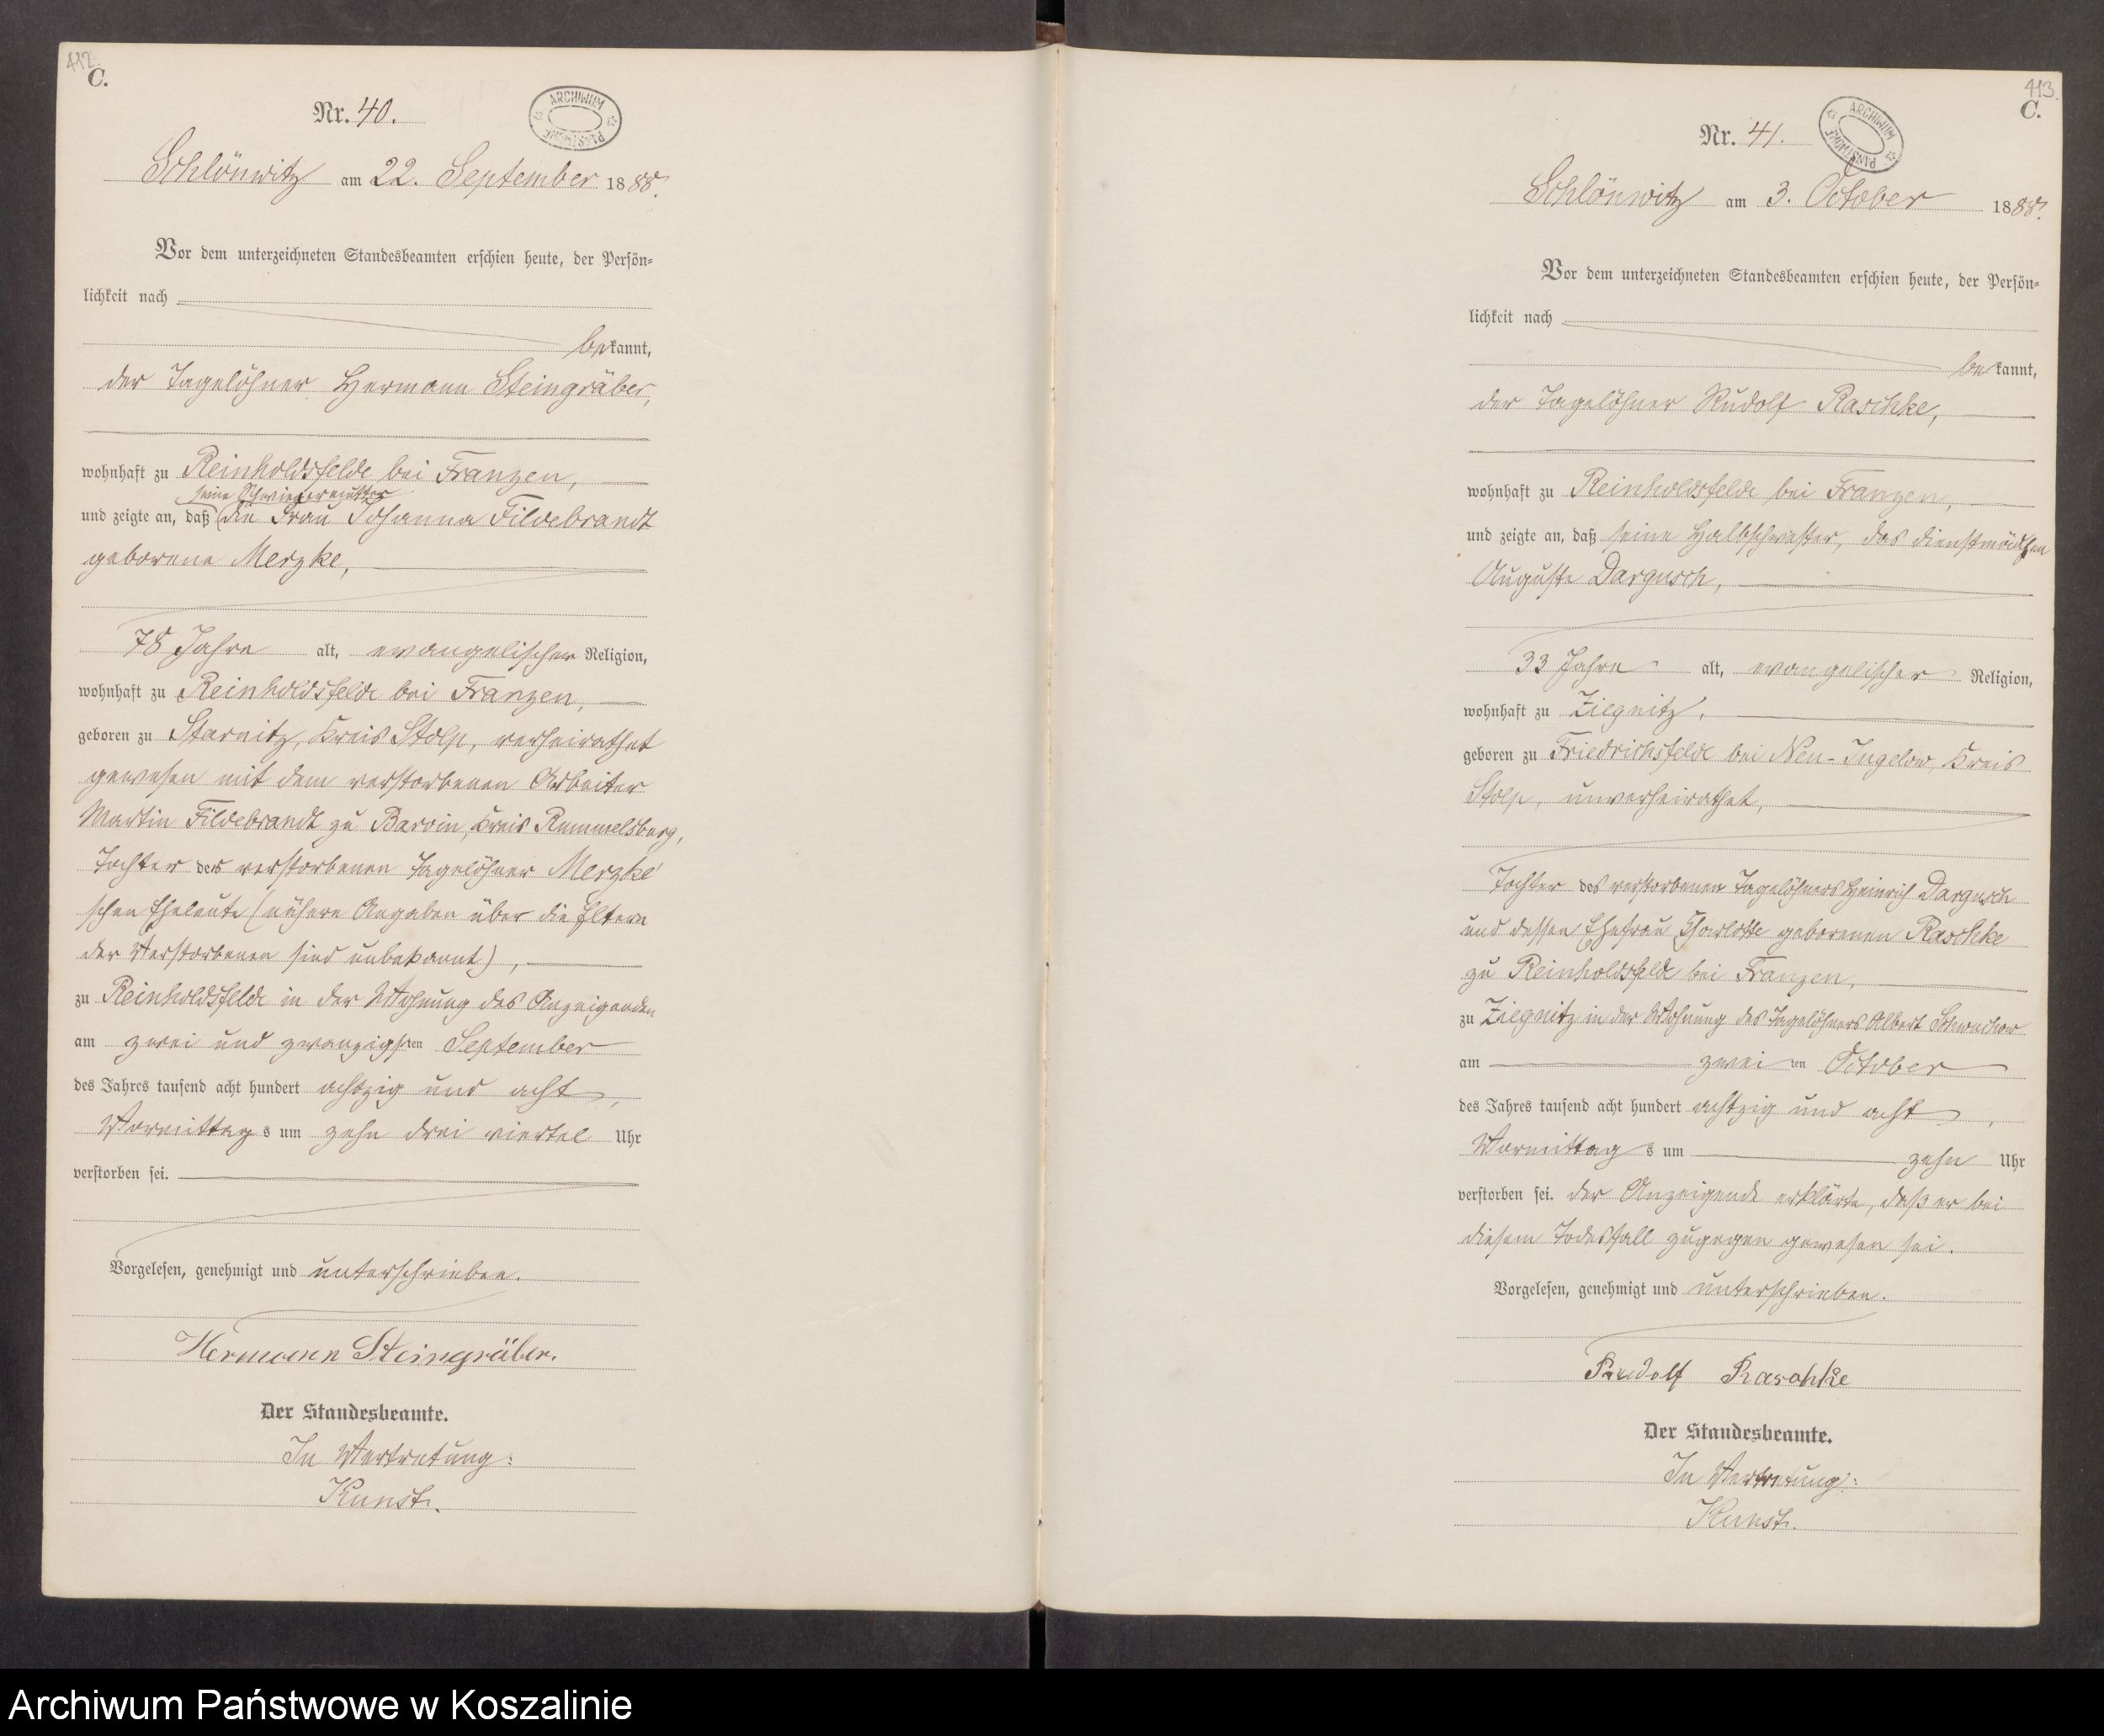 412.
C.
Nr. 40.
ARCHIWUM PAŃSTWOWE
Schlönwitz am 22. September 1888.
Vor dem unterzeichneten Standesbeamten erschien heute, der Persön-
lichkeit nach
bekannt,
der Tagelöhner Hermann Steingräber,
wohnhaft zu Reinholdsfelde bei Franzen,
seine Schwiegermutter
und zeigte an, daß die Frau Johanna Fildebrandt
geborene Merzke,
78 Jahre alt, evangelischer Religion,
wohnhaft zu Reinholdsfelde bei Franzen,
geboren zu Starnitz, Kreis Stolp, verheirathet
gewesen mit dem verstorbenen Arbeiter
Martin Fildebrandt zu Barvin, Kreis Rummelsburg,
Tochter der verstorbenen Tagelöhner Merzke'
schen Eheleute (nähere Angaben über die Eltern
der Verstorbenen sind unbekannt),
zu Reinholdsfelde in der Wohnung des Anzeigenden
am zwei und zwanzigsten September
des Jahres tausend acht hundert achtzig und acht,
Vormittags um zehn drei viertel Uhr
verstorben sei.
Vorgelesen, genehmigt und unterschrieben.
Hermann Steingräber.
Der Standesbeamte.
In Vertretung:
Kunst.
413.
C.
Nr. 41.
ARCHIWUM PAŃSTWOWE
Schlönwitz am 3. October 1888.
Vor dem unterzeichneten Standesbeamten erschien heute, der Persön-
lichkeit nach
bekannt,
der Tagelöhner Rudolf Raschke,
wohnhaft zu Reinholdsfelde bei Franzen,
und zeigte an, daß seine Halbschwester, das Dienstmädchen
Auguste Dargusch,
33 Jahre alt, evangelischer Religion,
wohnhaft zu Ziegnitz,
geboren zu Friedrichsfelde bei Neu-Jugelow, Kreis
Stolp, unverheirathet,
Tochter des verstorbenen Tagelöhners Heinrich Dargusch
und dessen Ehefrau Charlotte geborenen Raschke
zu Reinholdsfelde bei Franzen,
zu Ziegnitz in der Wohnung des Tagelöhners Albert
am zweiten October
des Jahres tausend acht hundert achtzig und acht,
Vormittags um zehn Uhr
verstorben sei. Der Anzeigende erklärte, daß er bei
diesem Todesfall zugegen gewesen sei.
Vorgelesen, genehmigt und unterschrieben.
Rudolf Raschke
Der Standesbeamte.
In Vertretung:
Kunst.
Archiwum Państwowe w Koszalinie